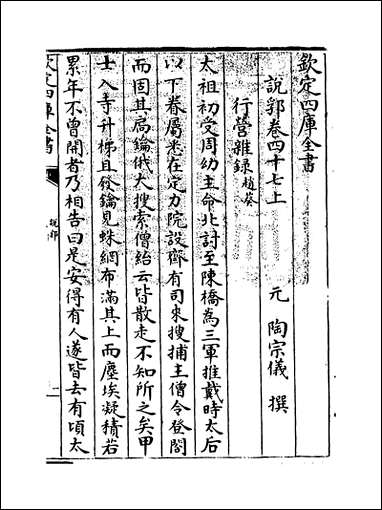 欽定四庫全書
說郛卷四十七上
元 陶宗儀 撰
行營雜錄趙葵
太祖初受周幼主命北討至陳橋為三軍推戴時太后
以下眷屬悉在定力院設齋有司來搜捕主僧令登閣
而固其扃鑰俄大搜索僧紿云皆散走不知所之矣甲
士入寺升梯且發鑰見蛛網布滿其上而塵埃凝積若
累年不曾開者乃相告曰是安得有人遂皆去有頃太
欽定四庫全書
說郛